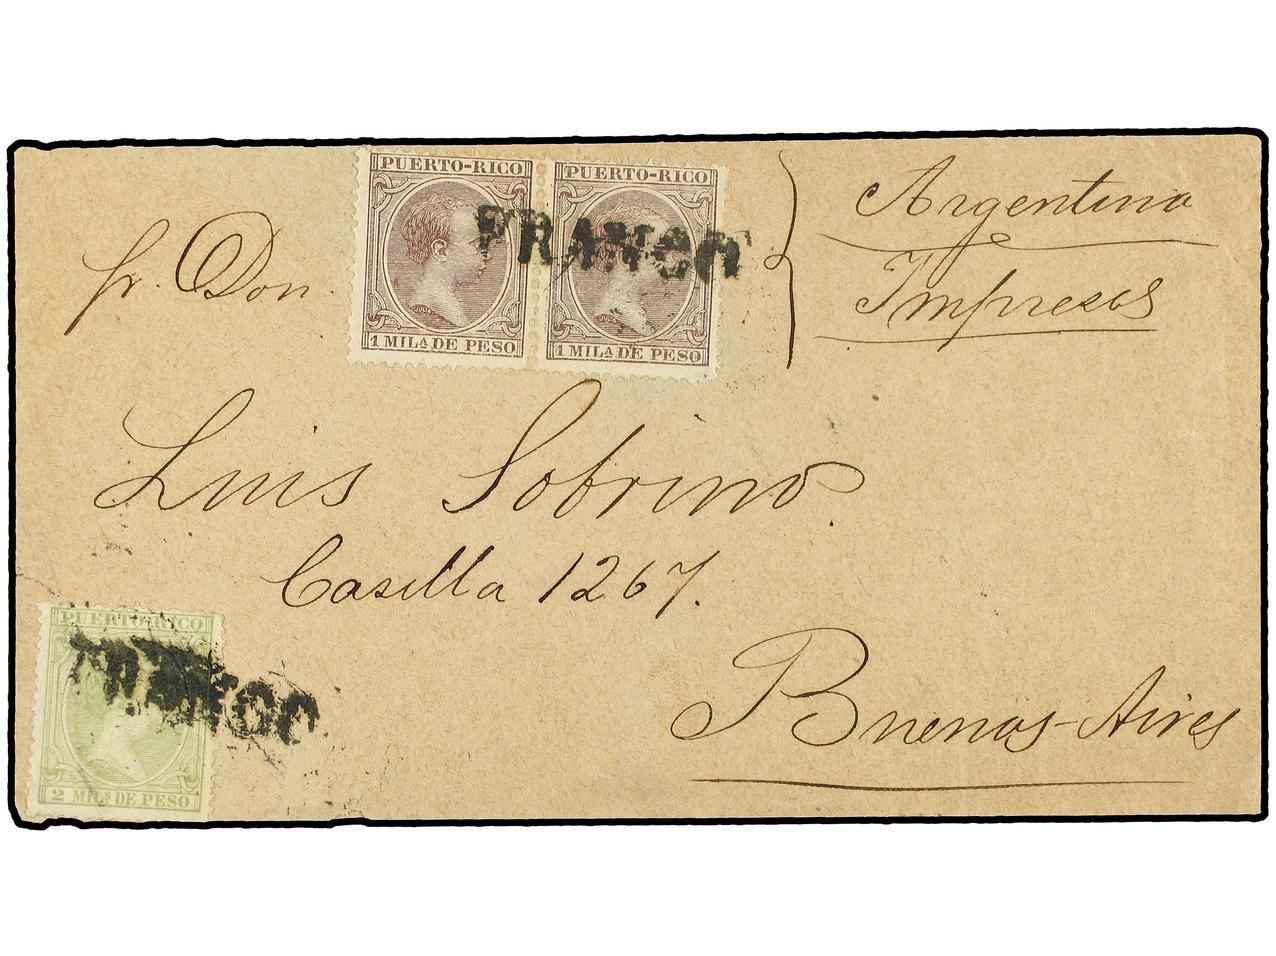 PUERTO-RICO PUERTO-RICO
FRANCO
1 MILA DE PESO 1 MILA DE PESO
Argentina
Impresos
fr. Don
Luis Sobrino.
Casilla 1267.
Buenos-Aires
PUERTO-RICO
FRANCO
2 MILS DE PESO